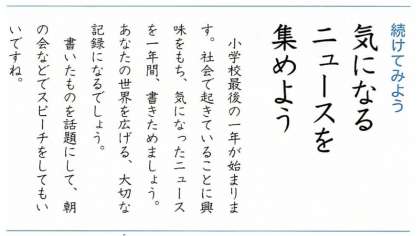 続けてみよう
気になる
ニュースを
集めよう
小学校最後の一年が始まりま
す。社会で起きていることに興
味をもち、気になったニュース
を一年間、書きためましょう。
あなたの世界を広げる、大切な
記録になるでしょう。
書いたものを話題にして、朝
の会などでスピーチをしてもい
いですね。